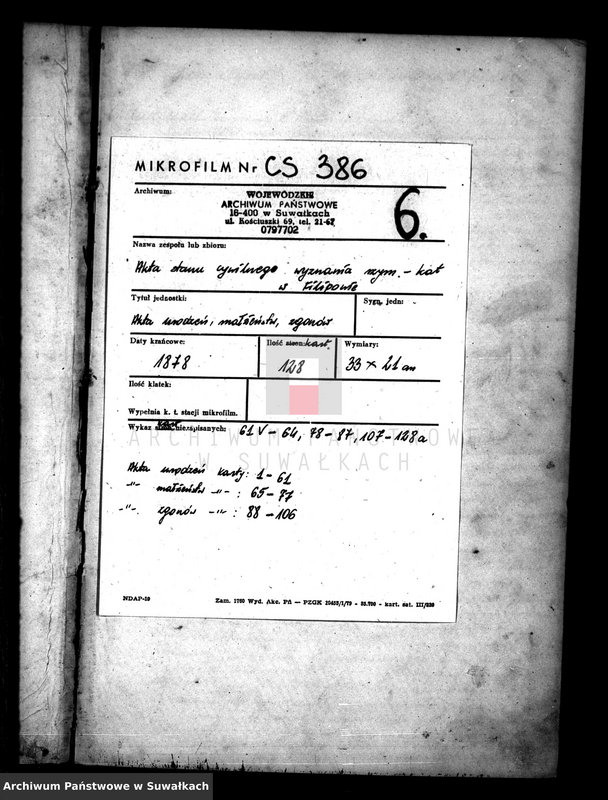 MIKROFILM Nr CS 386
Archiwum:
WOJEWÓDZKIE
ARCHIWUM PAŃSTWOWE
16-400 w Suwałkach
ul. Kościuszki 69, tel. 21-67
0797702
6.
Nazwa zespołu lub zbioru:
Akta stanu cywilnego wyznania rzym. - kat
w Filipowie
Tytuł jednostki:
Sygn. jedn:
Akta urodzeń, małżeństw, zgonów
Daty krańcowe:
Ilość stron: kart
Wymiary:
1878
128
33 x 21 cm
Ilość klatek:
Wypełnia k. t. stacji mikrofilm.
Wykaz kart niezapisanych: 61V - 64, 78 - 87, 107 - 128a
ARCHIWUM PAŃSTWOWE
W SUWAŁKACH
Akta urodzeń karty: 1 - 61
-"- małżeństw -"- : 65 - 77
-"- zgonów -"- : 88 - 106
NDAP-19
Zam. 1760 Wyd. Akc. Pń — PZGK
kart. sat. III/220
Archiwum Państwowe w Suwałkach